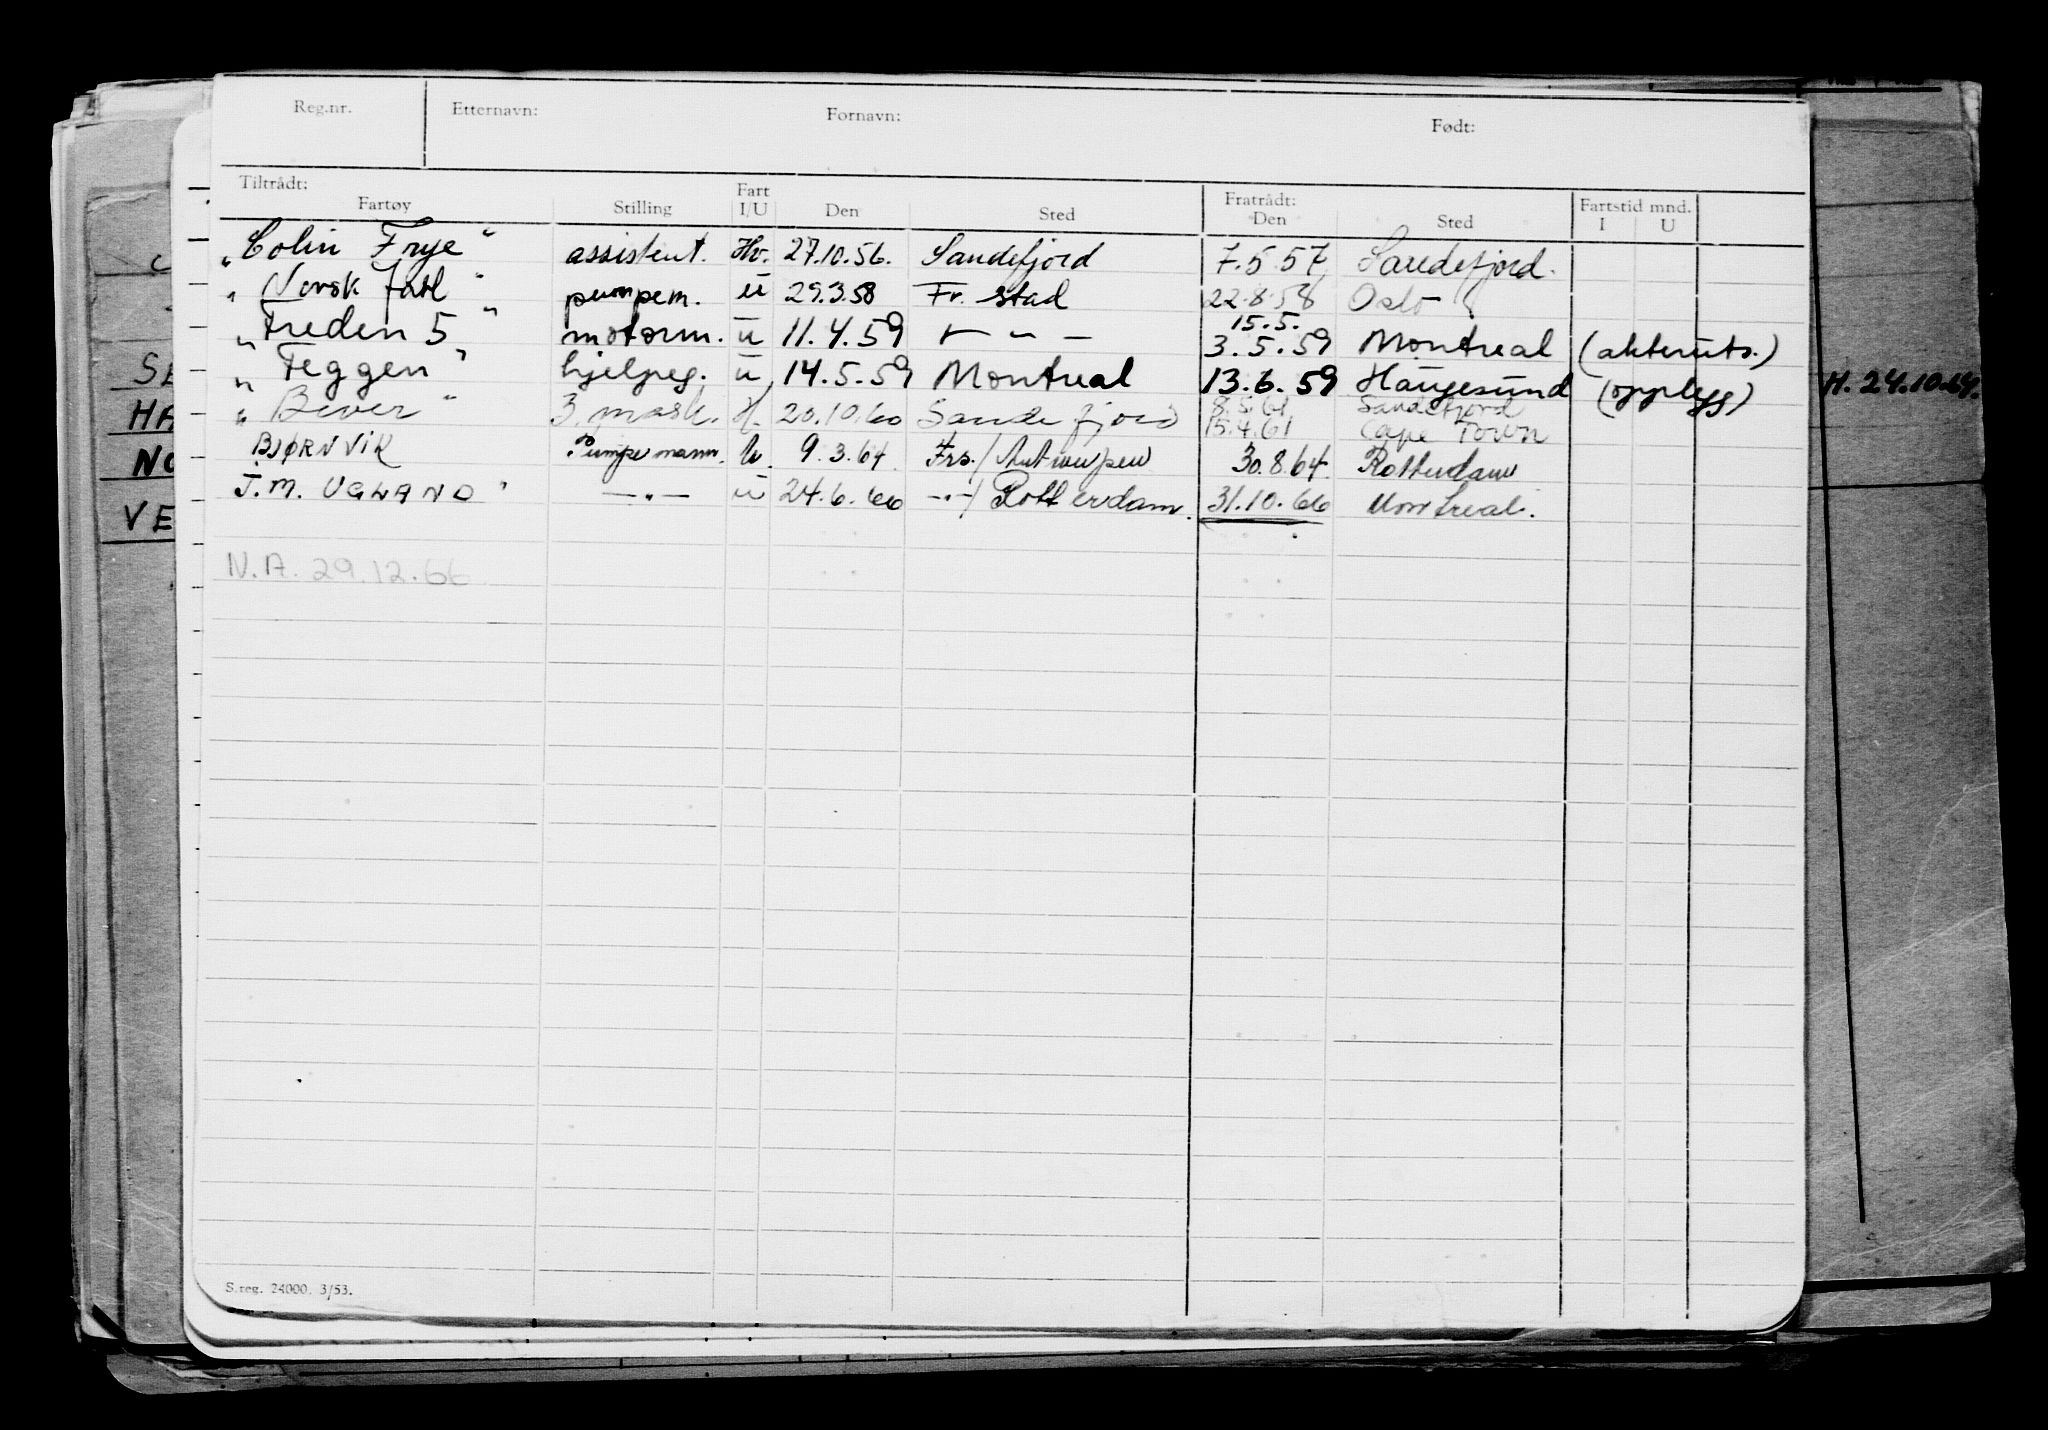 Reg.nr. Etternavn: Fornavn: Født:
Tiltrådt: Fartøy Stilling Fart I/U Den Sted Fratrådt: Den Sted Fartstid mnd. I U
„Colin Frye" assistent. Hv. 27.10.56. Sandefjord 7.5.57 Sandefjord.
„Norsk Jarl" pumpem. u 29.3.58 Fr. stad 22.8.58 Oslo
„Freden 5" motorm. u 11.4.59 — " — 15.5. 3.5.59 Montreal (akteruts.)
„Teggen" hjelpeg. u 14.5.59 Montreal 13.6.59 Haugesund (opplegg)
„Bever" 3. mask. H. 20.10.60 Sandefjord 8.5.61 Sandefjord
15.4.61 Cape Town
BJØRNVIK Pumpemann. U. 9.3.64. Frs./Antwerpen 30.8.64. Rotterdam
J.M. UGLAND " — " — u 24.6.66 -"-/ Rotterdam. 31.10.66 Montreal.
N.A. 29.12.66
S.reg. 24000. 3/53.
SE
HA
NO
VE
H. 24.10.64.